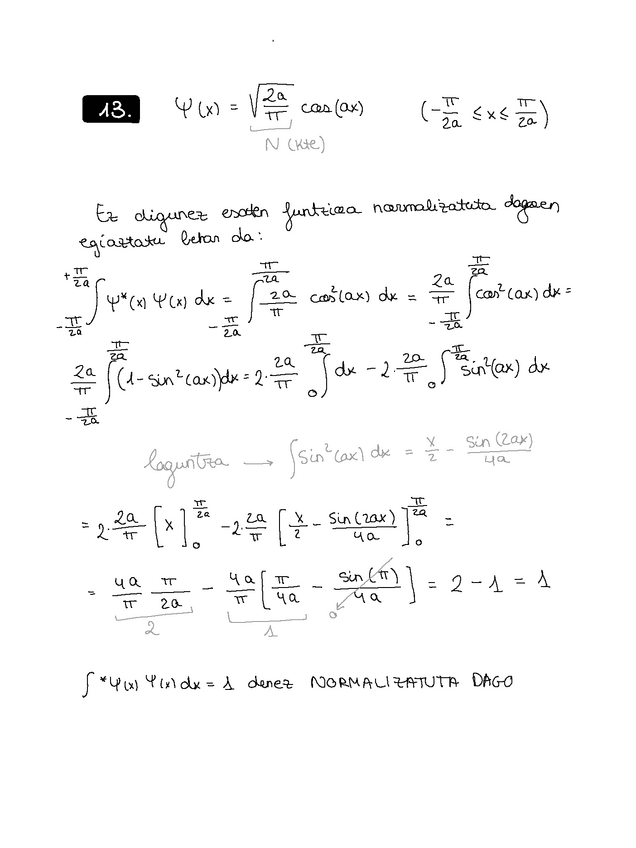 13. Ψ(x) = √(2a/π) cos(ax) (-π/2a ≤ x ≤ π/2a)
N (kte)
Ez digunez esaten funtzioa normalizatuta dagoen
egiaztatu behar da:
∫_{-π/2a}^{+π/2a} Ψ*(x) Ψ(x) dx = ∫_{-π/2a}^{π/2a} 2a/π cos²(ax) dx = 2a/π ∫_{-π/2a}^{π/2a} cos²(ax) dx =
2a/π ∫_{-π/2a}^{π/2a} (1-sin²(ax))dx = 2·2a/π ∫_0^{π/2a} dx - 2·2a/π ∫_0^{π/2a} sin²(ax) dx
laguntza → ∫sin²(ax) dx = x/2 - sin(2ax)/4a
= 2·2a/π [x]_0^{π/2a} - 2·2a/π [x/2 - sin(2ax)/4a]_0^{π/2a} =
= 4a/π π/2a - 4a/π [π/4a - sin(π)/4a] = 2 - 1 = 1
2 1 0
∫ *Ψ(x) Ψ(x) dx = 1 denez NORMALIZATUTA DAGO